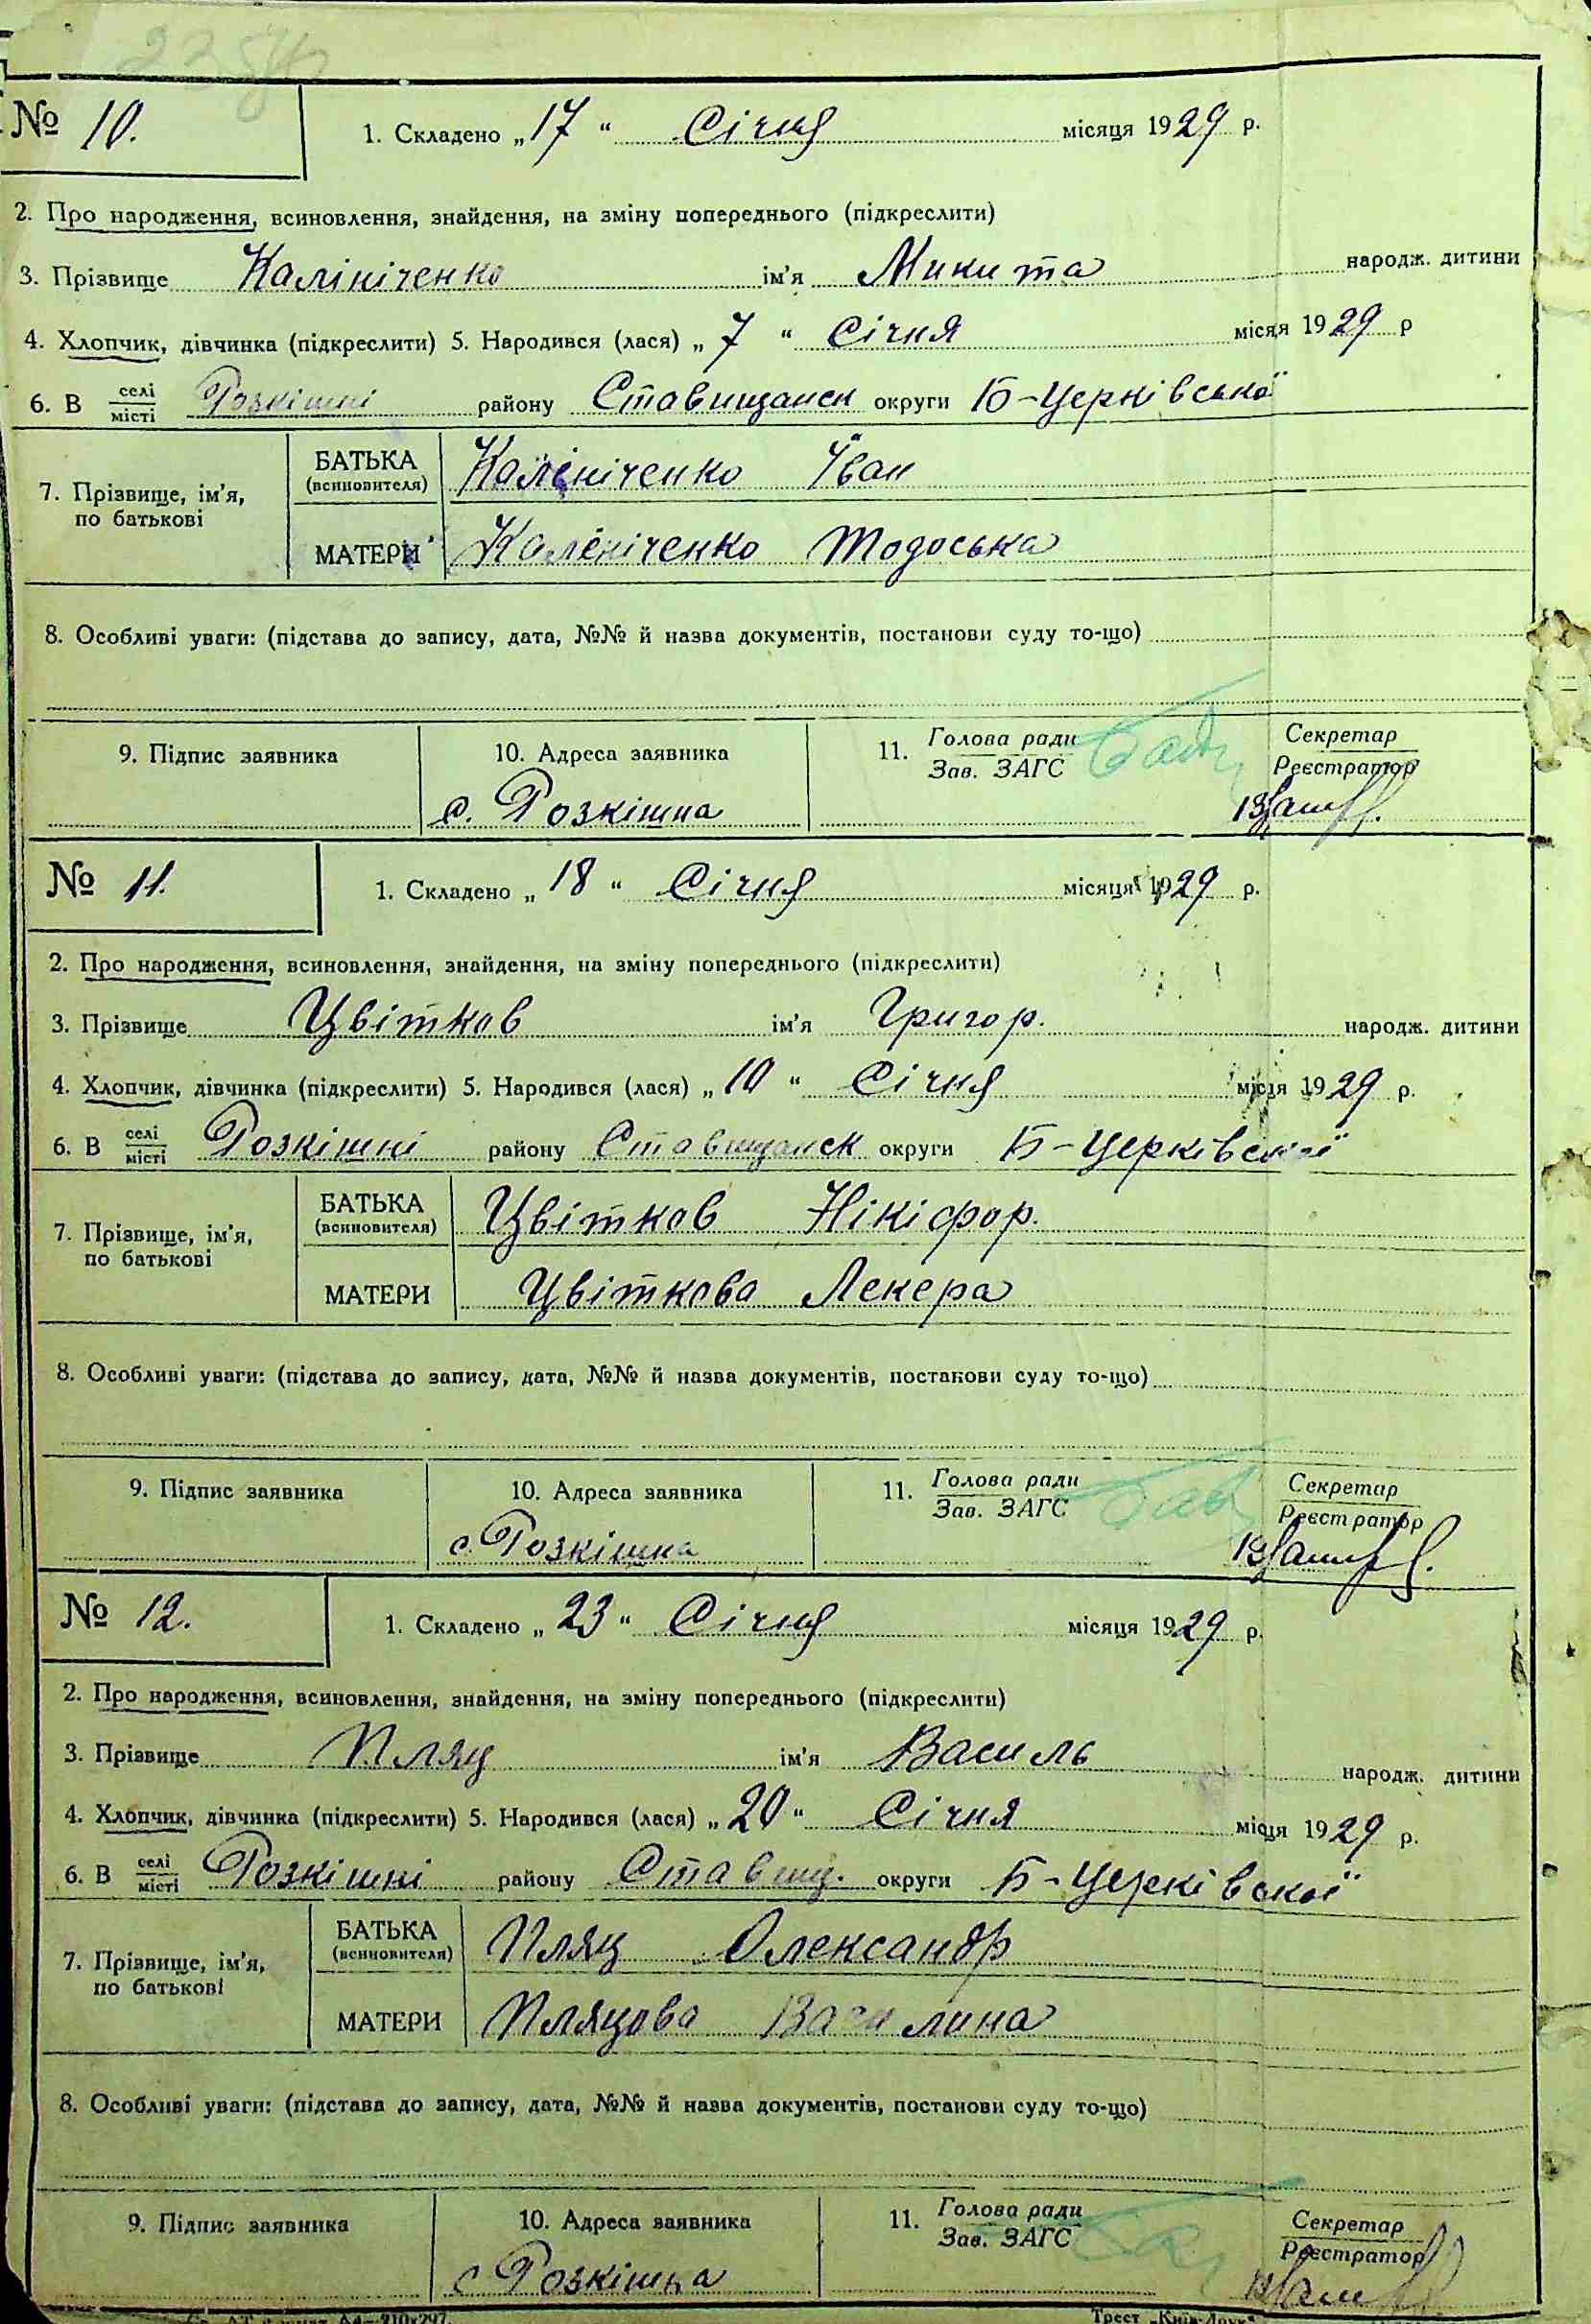 № 10.
1. Складено „17“ Січня місяця 1929 р.
2. Про народження, всиновлення, знайдення, на зміну попереднього (підкреслити)
3. Прізвище Калініченко ім'я Микита народж. дитини
4. Хлопчик, дівчинка (підкреслити) 5. Народився (лася) „7“ Січня місяя 1929 р
6. В селі місті Розкішні району Ставищанск округи Б-Церківської
7. Прізвище, ім'я, по батькові
БАТЬКА (всиновителя) Калініченко Іван
МАТЕРИ Калініченко Тодоська
8. Особливі уваги: (підстава до запису, дата, №№ й назва документів, постанови суду то-що)
9. Підпис заявника
10. Адреса заявника
с. Розкішна
11. Голова ради Зав. ЗАГС
Секретар Реєстратор
№ 11.
1. Складено „18“ Січня місяця 1929 р.
2. Про народження, всиновлення, знайдення, на зміну попереднього (підкреслити)
3. Прізвище Цвітков ім'я Григор. народж. дитини
4. Хлопчик, дівчинка (підкреслити) 5. Народився (лася) „10“ Січня місця 1929 р.
6. В селі місті Розкішні району Ставищанск округи Б-Церківської
7. Прізвище, ім'я, по батькові
БАТЬКА (всиновителя) Цвітков Нікіфор.
МАТЕРИ Цвіткова Лекера
8. Особливі уваги: (підстава до запису, дата, №№ й назва документів, постанови суду то-що)
9. Підпис заявника
10. Адреса заявника
с. Розкішна
11. Голова ради Зав. ЗАГС
Секретар Реєстратор
№ 12.
1. Складено „23“ Січня місяця 1929 р.
2. Про народження, всиновлення, знайдення, на зміну попереднього (підкреслити)
3. Прізвище Пляц ім'я Василь народж. дитини
4. Хлопчик, дівчинка (підкреслити) 5. Народився (лася) „20“ Січня місця 1929 р.
6. В селі місті Розкішні району Ставищ. округи Б-Церківської
7. Прізвище, ім'я, по батькові
БАТЬКА (всиновителя) Пляц Олександр
МАТЕРИ Пляцова Василина
8. Особливі уваги: (підстава до запису, дата, №№ й назва документів, постанови суду то-що)
9. Підпис заявника
10. Адреса заявника
с Розкішна
11. Голова ради Зав. ЗАГС
Секретар Реєстратор
Трест „Київ-Друк“